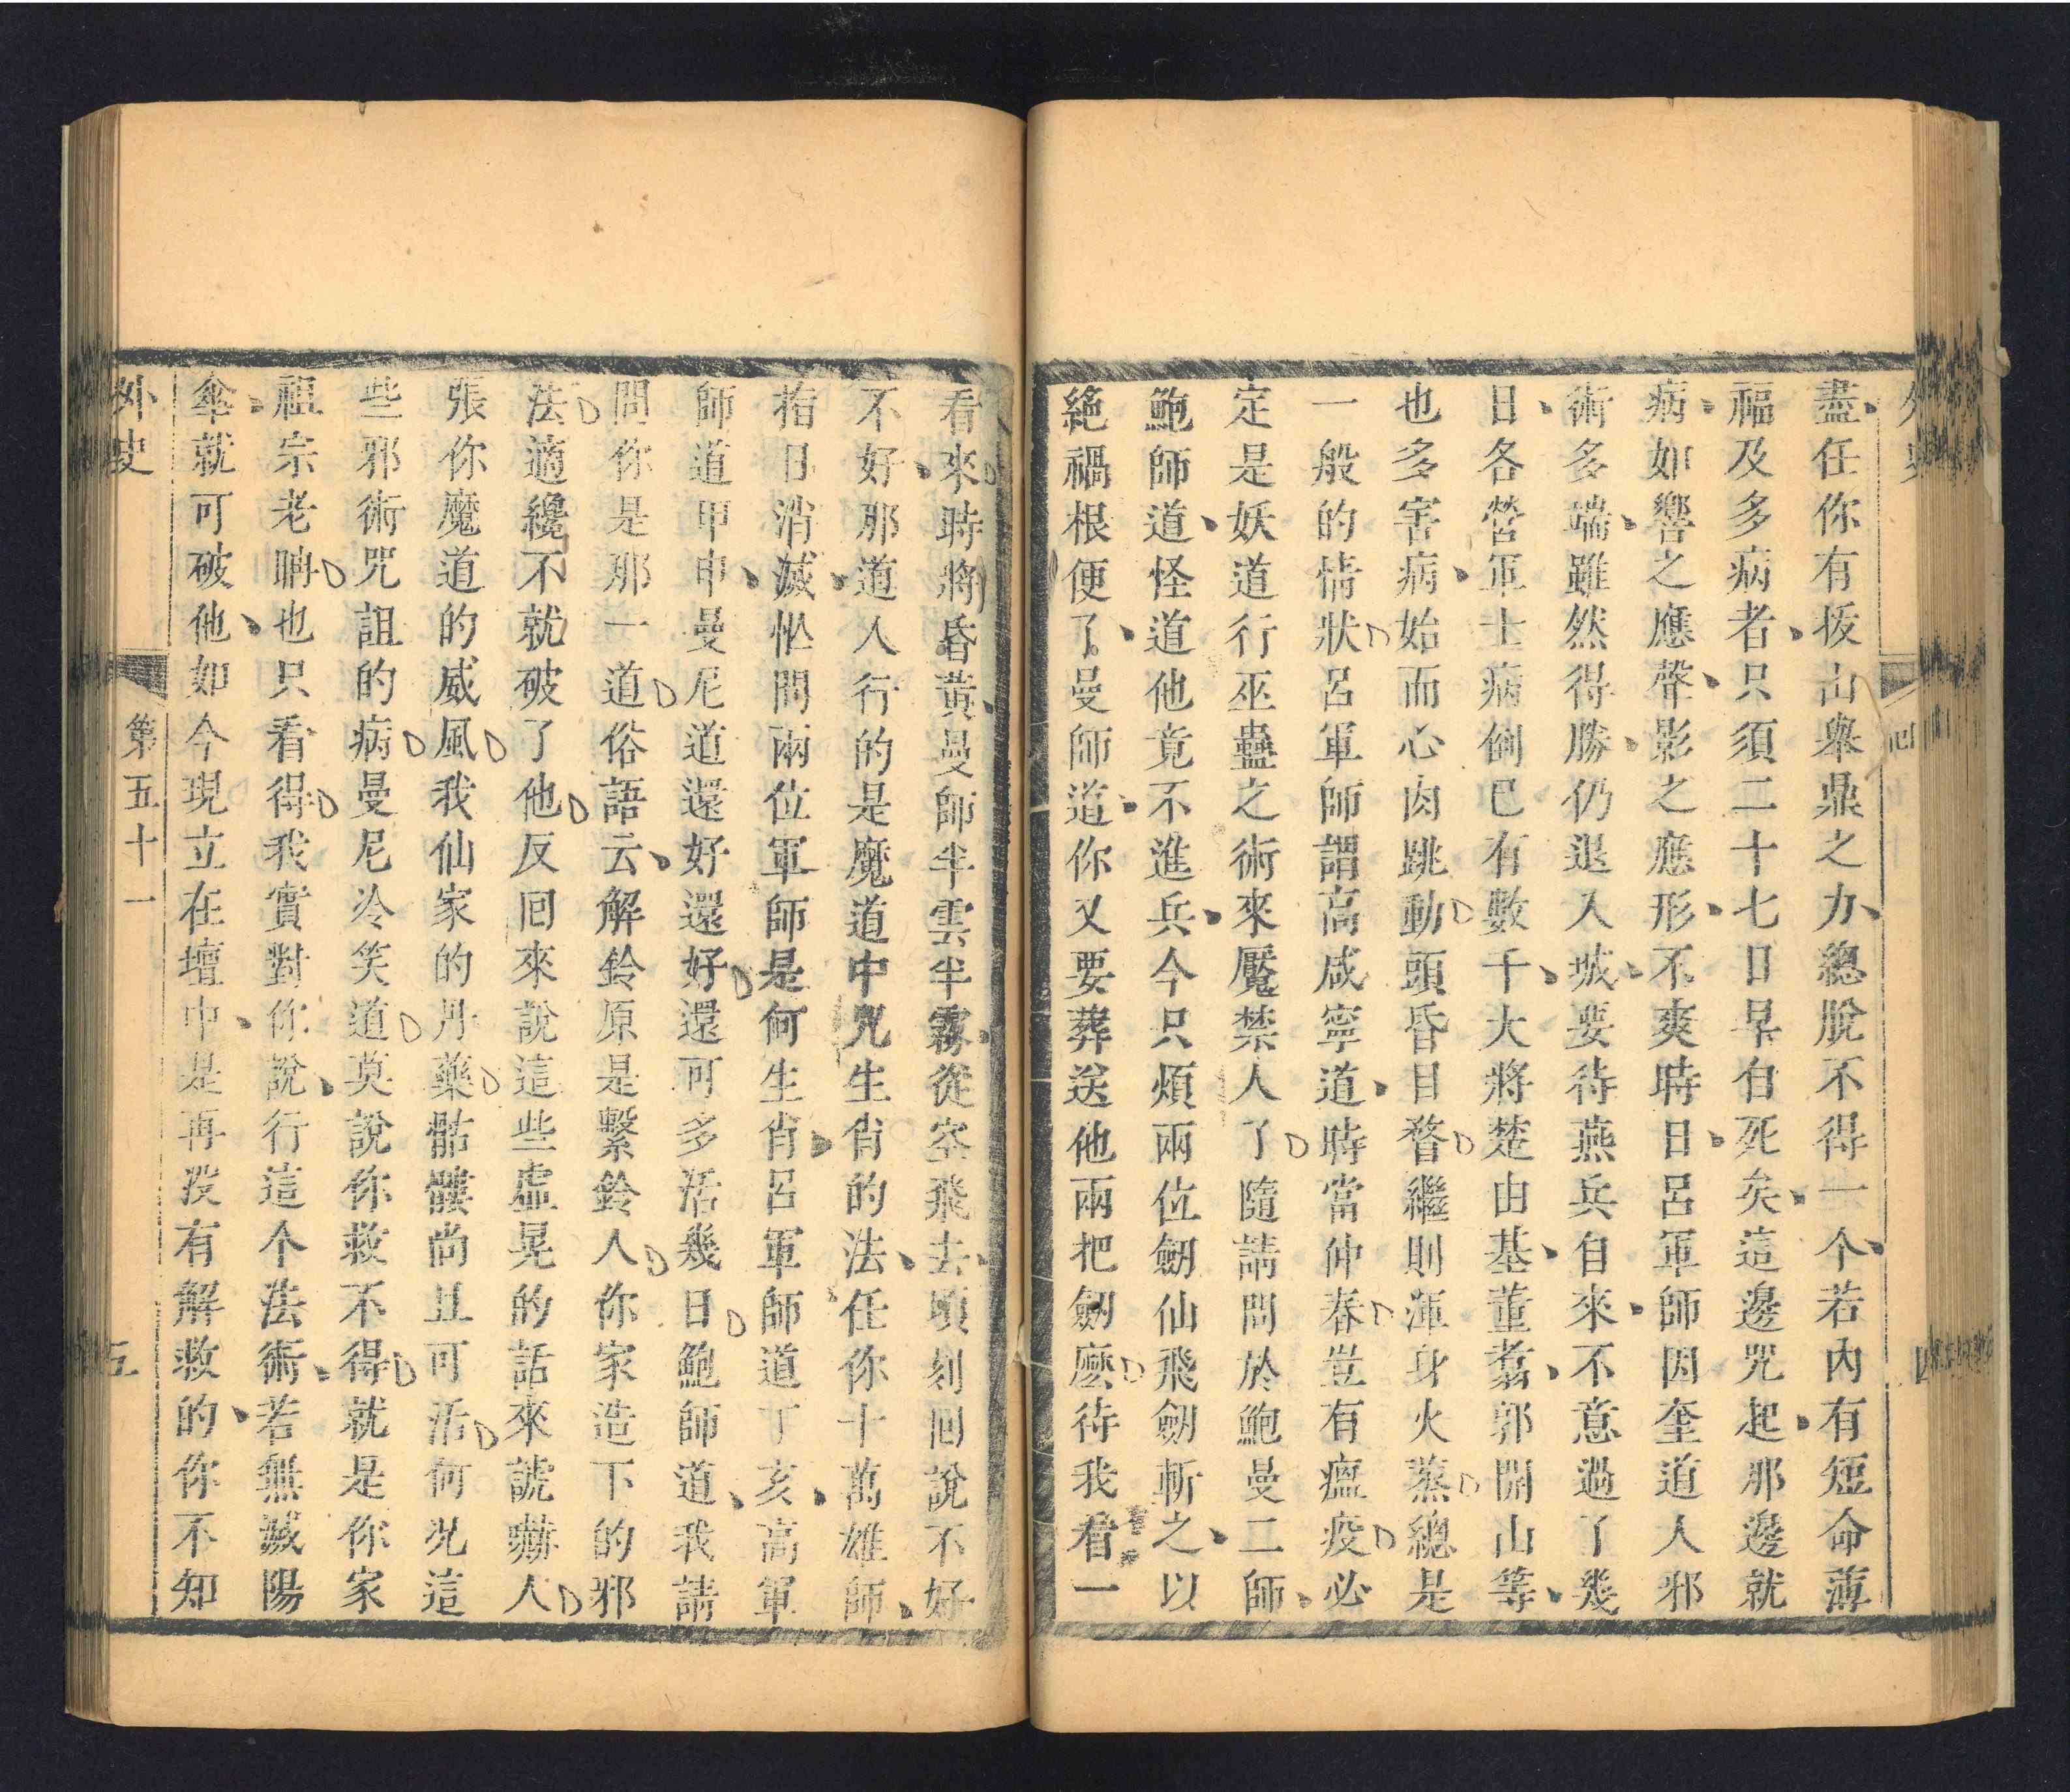 盡任你有拔山舉鼎之力總脫不得一个若內有短命薄
福及多病者只須二十七日早自死矣這邊咒起那邊就
病如響之應聲影之應形不爽時日呂軍師因奎道人邪
術多端雖然得勝仍退入城要待燕兵自來不意過了幾
日各營軍士病倒巳有數千大將楚由基董翥郭開山等
也多害病始而心肉跳動頭昏目瞀繼則渾身火蒸總是
一般的情狀呂軍師謂高咸寧道時當仲春豈有瘟疫必
定是妖道行巫蠱之術來魘禁人了隨請問於鮑曼二師
鮑師道怪道他竟不進兵今只煩兩位劒仙飛劒斬之以
絕禍根便了曼師道你又要葬送他兩把劒麽待我看一
看來時將昏黃曼師半雲半霧從空飛去頃刻囘說不好
不好那道人行的是魔道中咒生肖的法任你十萬雄師
指日消滅忙問兩位軍師是何生肖呂軍師道丁亥高軍
師道甲申曼尼道還好還好還可多活幾日鮑師道我請
問你是那一道俗語云解鈴原是繫鈴人你家造下的邪
法適纔不就破了他反囘來說這些虛晃的話來諕嚇人
張你魔道的威風我仙家的丹藥骷髏尚且可活何況這
些邪術咒詛的病曼尼冷笑道莫說你救不得就是你家
祖宗老聃也只看得我實對你說行這个法術若無滅陽
傘就可破他如今現立在壇中是再沒有解救的你不知
外史
第五十一
五